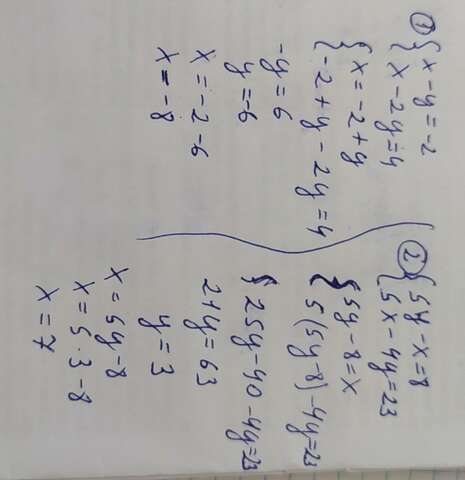 ① { x - y = -2
x - 2y = 4
{ x = -2 + y
-2 + y - 2y = 4
-y = 6
y = -6
x = -2 - 6
x = -8
② { 5y - x = 8
5x - 4y = 23
{ 5y - 8 = x
5(5y - 8) - 4y = 23
{ 25y - 40 - 4y = 23
21y = 63
y = 3
x = 5y - 8
x = 5 · 3 - 8
x = 7